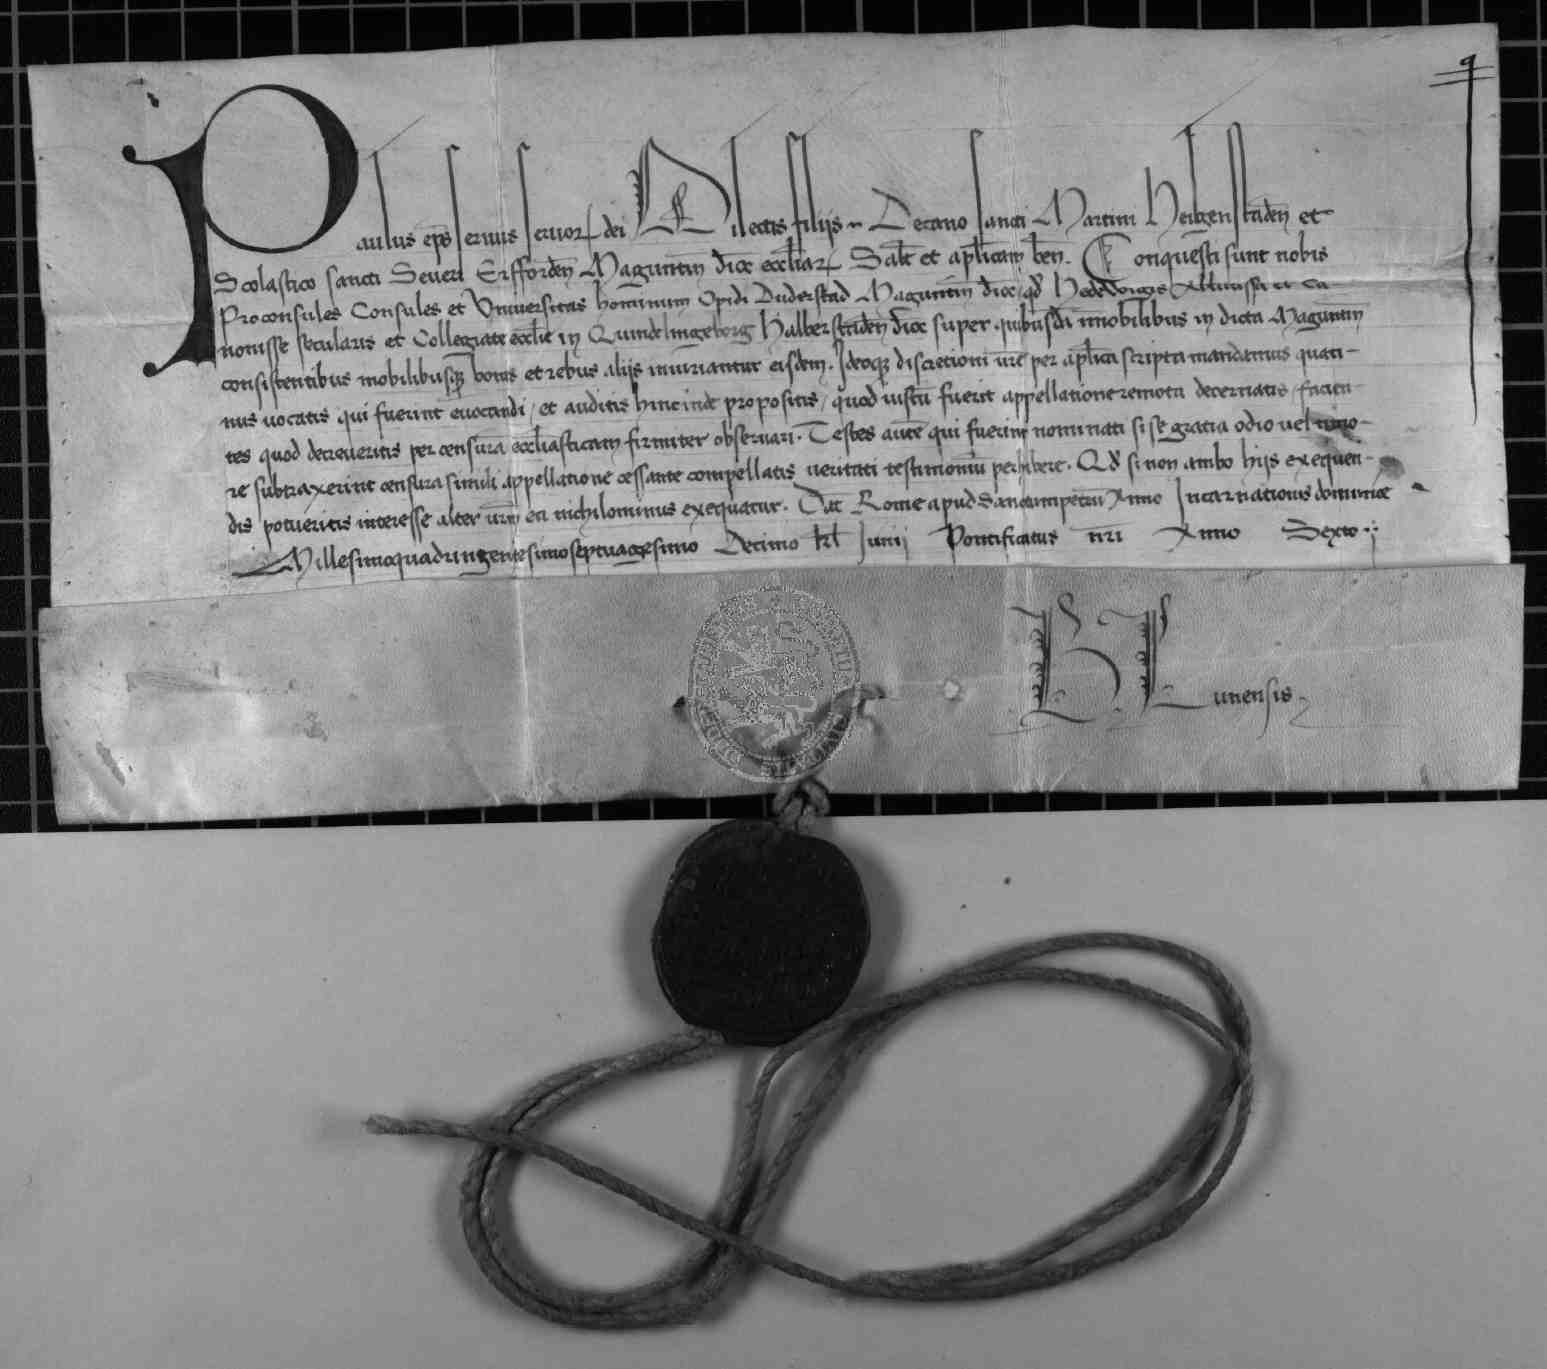 Paulus ep̄s seruus seruoꝝ dei Dilectis filijs Decano sancti Martini Heilgenstaden̄ et
Scolastico sancti Seueri Erfforden̄ Maguntin̄ dioc̄ eccl̄iaꝝ Salt̄ et apl̄icam ben̄. Conquesti sunt nobis
Proconsules Consules et Vniuersitas hominum Opidi Duderstad Maguntin̄ dioc̄ qd̄ Hedewigis Abbatissa et Ca-
nonisse secularis et Collegiate eccl̄ie in Quindelingeborg Halberstaden̄ dioc̄ super quibusdā inmobilibus in dicta Maguntin̄
consistentibus mobilibusqꝫ bonis et rebus alijs iniuriantur eisdem. Ideoqꝫ discretioni ur̄e per apl̄ica scripta mandamus quati-
nus uocatis qui fuerint euocandi, et auditis hincinde propositis, quod iustū fuerit appellatione remota decernatis, facien-
tes quod decreueritis per censurā eccl̄iasticam firmiter obseruari. Testes aut̄e qui fuerint nominati si se gratia odio uel timo-
re subtraxerint censura simili appellatione cessante compellatis ueritati testimoniū perhibere. Qd̄ si non ambo hijs exequen-
dis potueritis interesse alter ur̄m ea nichilominus exequatur. Dat̄ Rome apud Sanctumpetrū Anno Incarnationis dominice
Millesimoquadringentesimoseptuagesimo Decimo kl̄ Iunij Pontificatus nr̄i Anno Sexto
B. Lunensis